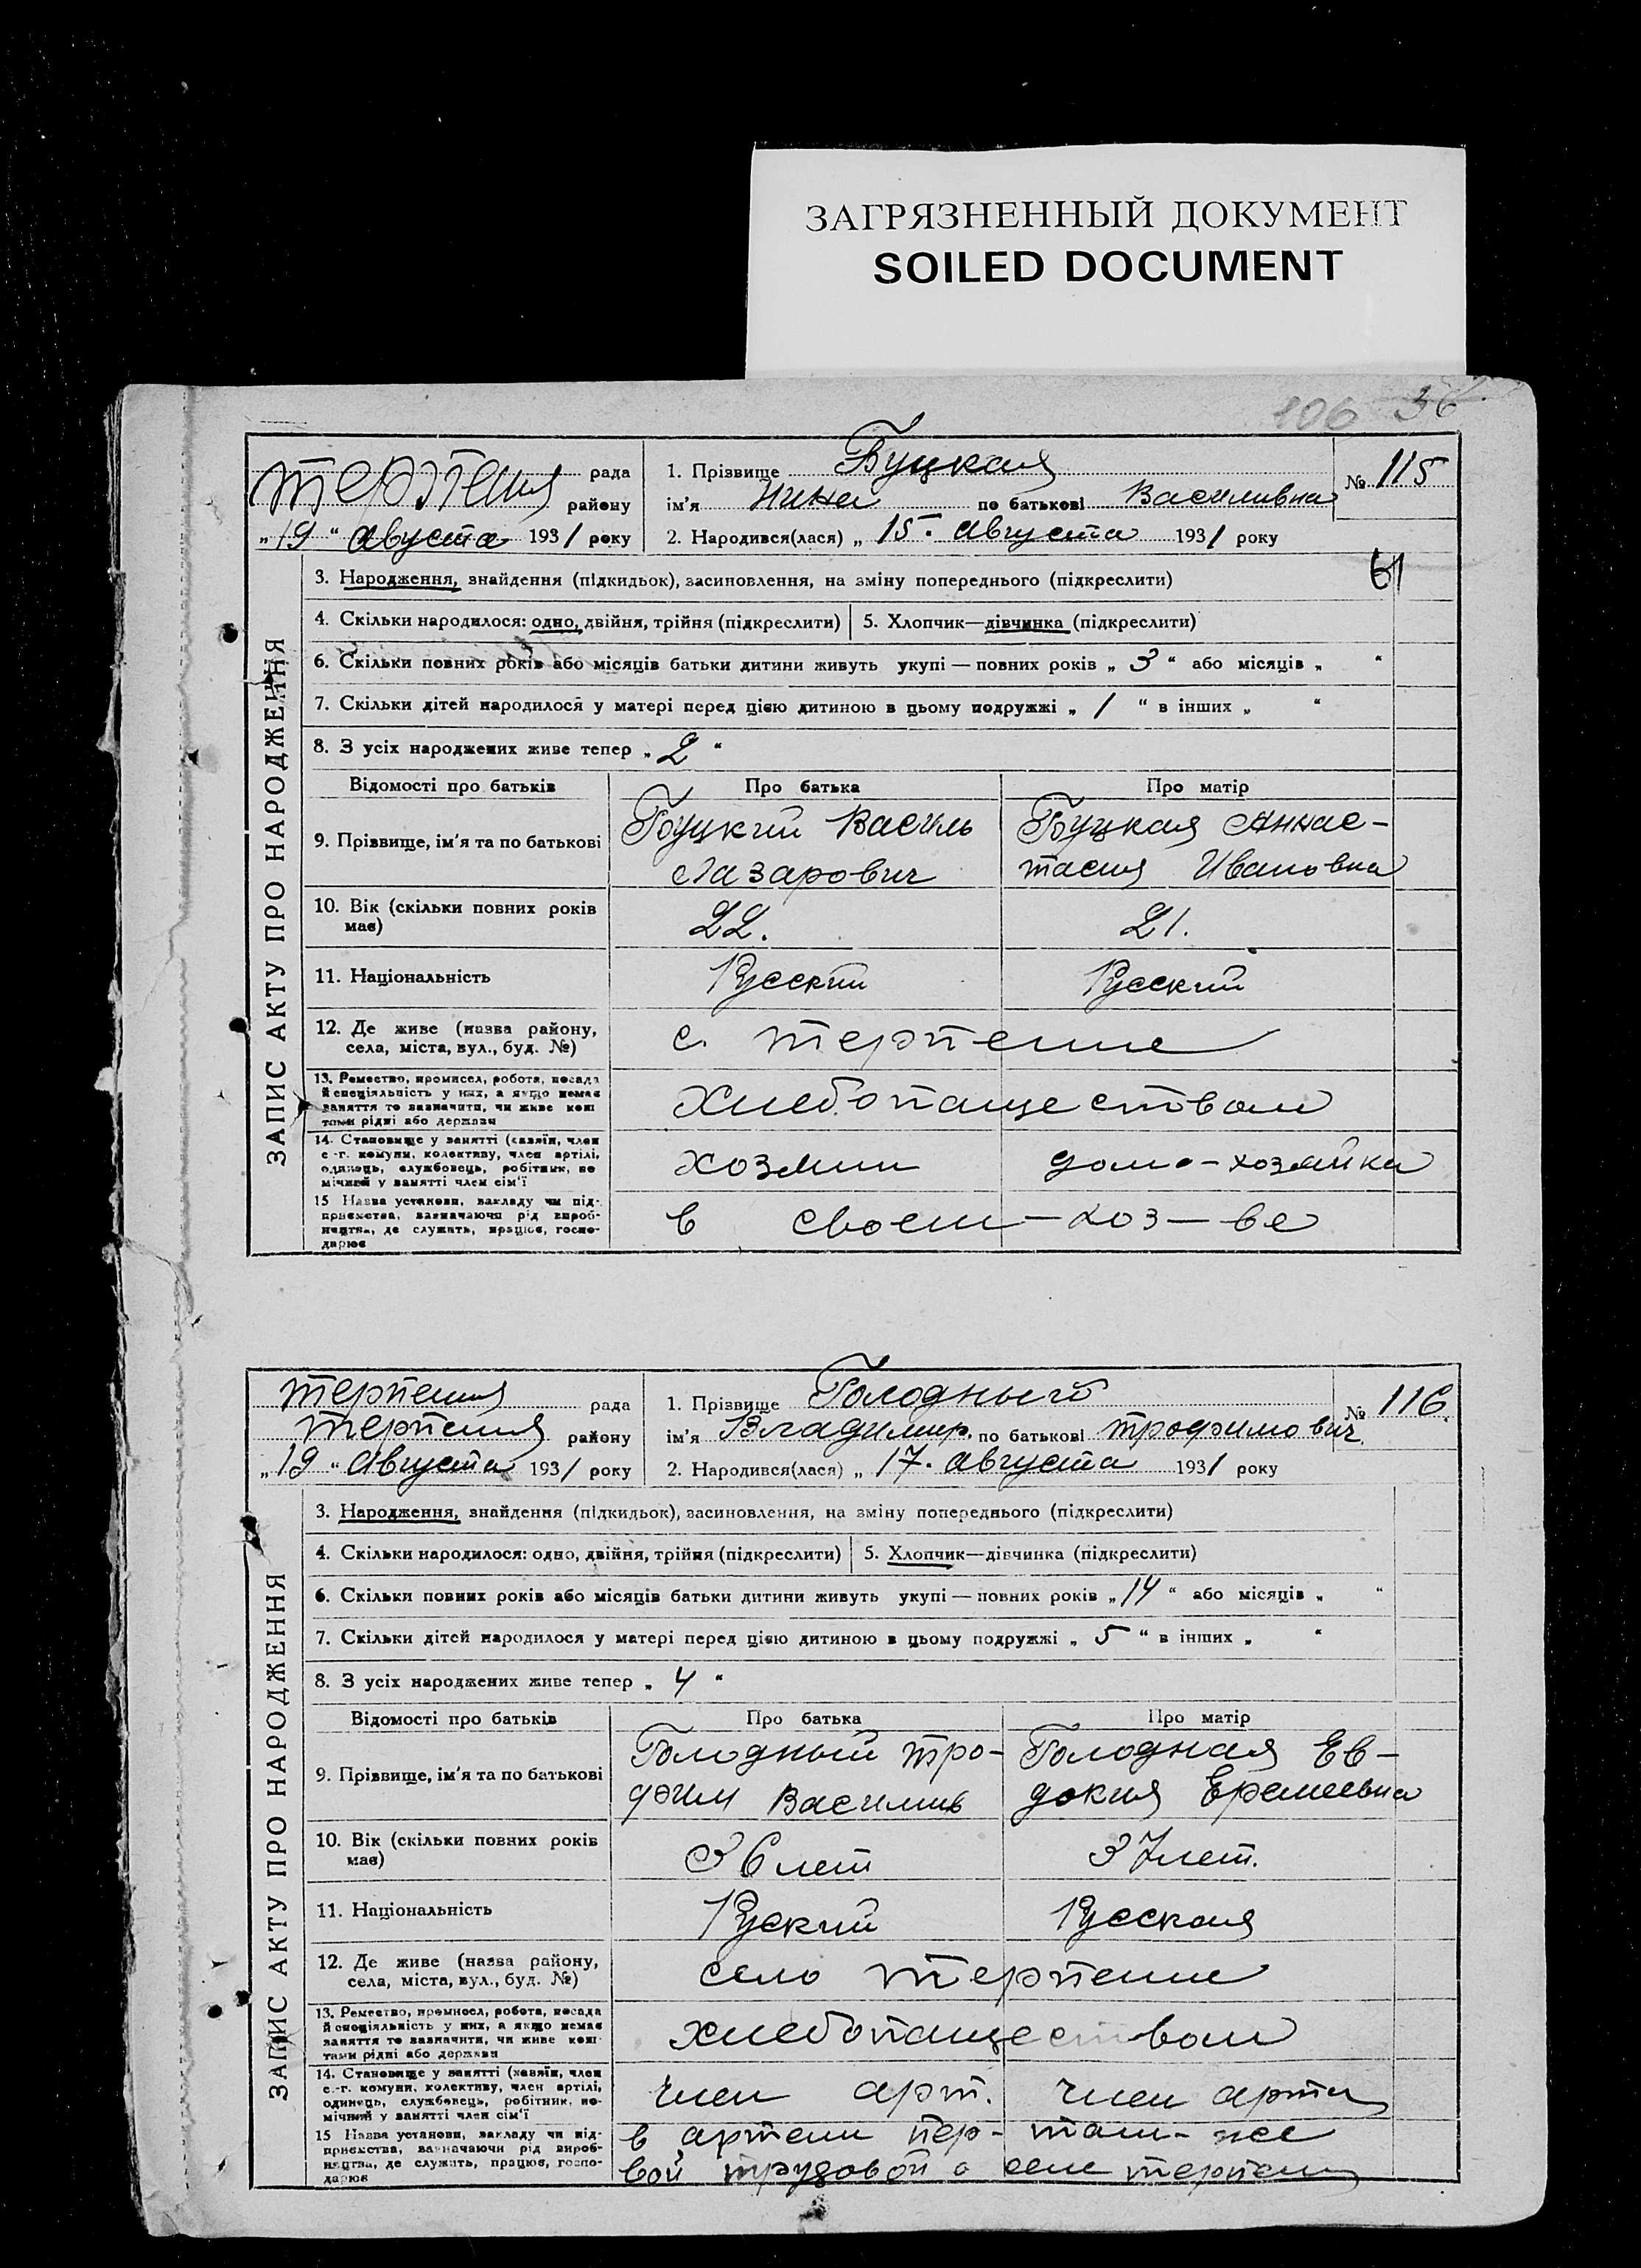 ЗАГРЯЗНЕННЫЙ ДОКУМЕНТ
SOILED DOCUMENT
106 36
терпения рада
району
„19“ Августа 1931 року
1. Прізвище Буцкая
ім'я Нина по батькові Василивна
№ 115
2. Народився(лася) „15. Августа 1931 року
ЗАПИС АКТУ ПРО НАРОДЖЕННЯ
3. Народження, знайдення (підкидьок), засиновлення, на зміну попереднього (підкреслити)
61
4. Скільки народилося: одно, двійня, трійня (підкреслити) 5. Хлопчик—дівчинка (підкреслити)
6. Скільки повних років або місяців батьки дитини живуть укупі — повних років „3“ або місяців „ “
7. Скільки дітей народилося у матері перед цією дитиною в цьому подружжі „1“ в інших „ “
8. З усіх народжених живе тепер „2“
Відомості про батьків Про батька Про матір
9. Прізвище, ім'я та по батькові
Буцкий Василь
Лазарович
Буцкая Аннас-
тасия Ивановна
10. Вік (скільки повних років
має)
22. 21.
11. Національність Русский Русский
12. Де живе (назва району,
села, міста, вул., буд. №)
с. терпение
13. Ремество, промисел, робота, посада
й спеціяльність у них, а якщо немає
заняття то зазначити, чи живе кош
тами рідні або держави
Хлебопаществом
14. Становище у занятті (хазяїн, член
с.-г. комуни, колективу, член артілі,
одинець, службовець, робітник, по
мічний у занятті член сім'ї
хозяин домо-хозяйка
15 Назва установи, закладу чи під-
приємства, зазначаючи рід вироб-
ництва, де служить, працює, госпо-
дарює
в своем-хоз-ве
терпения рада
терпения району
„19“ Августа 1931 року
1. Прізвище Голодный
ім'я Владимир. по батькові трофимович.
№ 116.
2. Народився(лася) „17. Августа 1931 року
ЗАПИС АКТУ ПРО НАРОДЖЕННЯ
3. Народження, знайдення (підкидьок), засиновлення, на зміну попереднього (підкреслити)
4. Скільки народилося: одно, двійня, трійня (підкреслити) 5. Хлопчик—дівчинка (підкреслити)
6. Скільки повних років або місяців батьки дитини живуть укупі — повних років „14“ або місяців „ “
7. Скільки дітей народилося у матері перед цією дитиною в цьому подружжі „5“ в інших „ “
8. З усіх народжених живе тепер „4“
Відомості про батьків Про батька Про матір
9. Прізвище, ім'я та по батькові
Голодный тро-
фим Василив
Голодная Ев-
докия Еремеевна
10. Вік (скільки повних років
має)
36 лет 37 лет.
11. Національність Руский Русская
12. Де живе (назва району,
села, міста, вул., буд. №)
село терпение
13. Ремество, промисел, робота, посада
й спеціяльність у них, а якщо немає
заняття то зазначити, чи живе кош-
тами рідні або держави
хлебопаществом
14. Становище у занятті (хазяїн, член
с.-г. комуни, колективу, член артілі,
одинець, службовець, робітник, по-
мічний у занятті член сім'ї
член арт. член арти
15 Назва установи, закладу чи під-
приємства, зазначаючи рід вироб-
ництва, де служить, працює, госпо-
дарює
в артели пер- там-же
вой трудовой в селе терпени